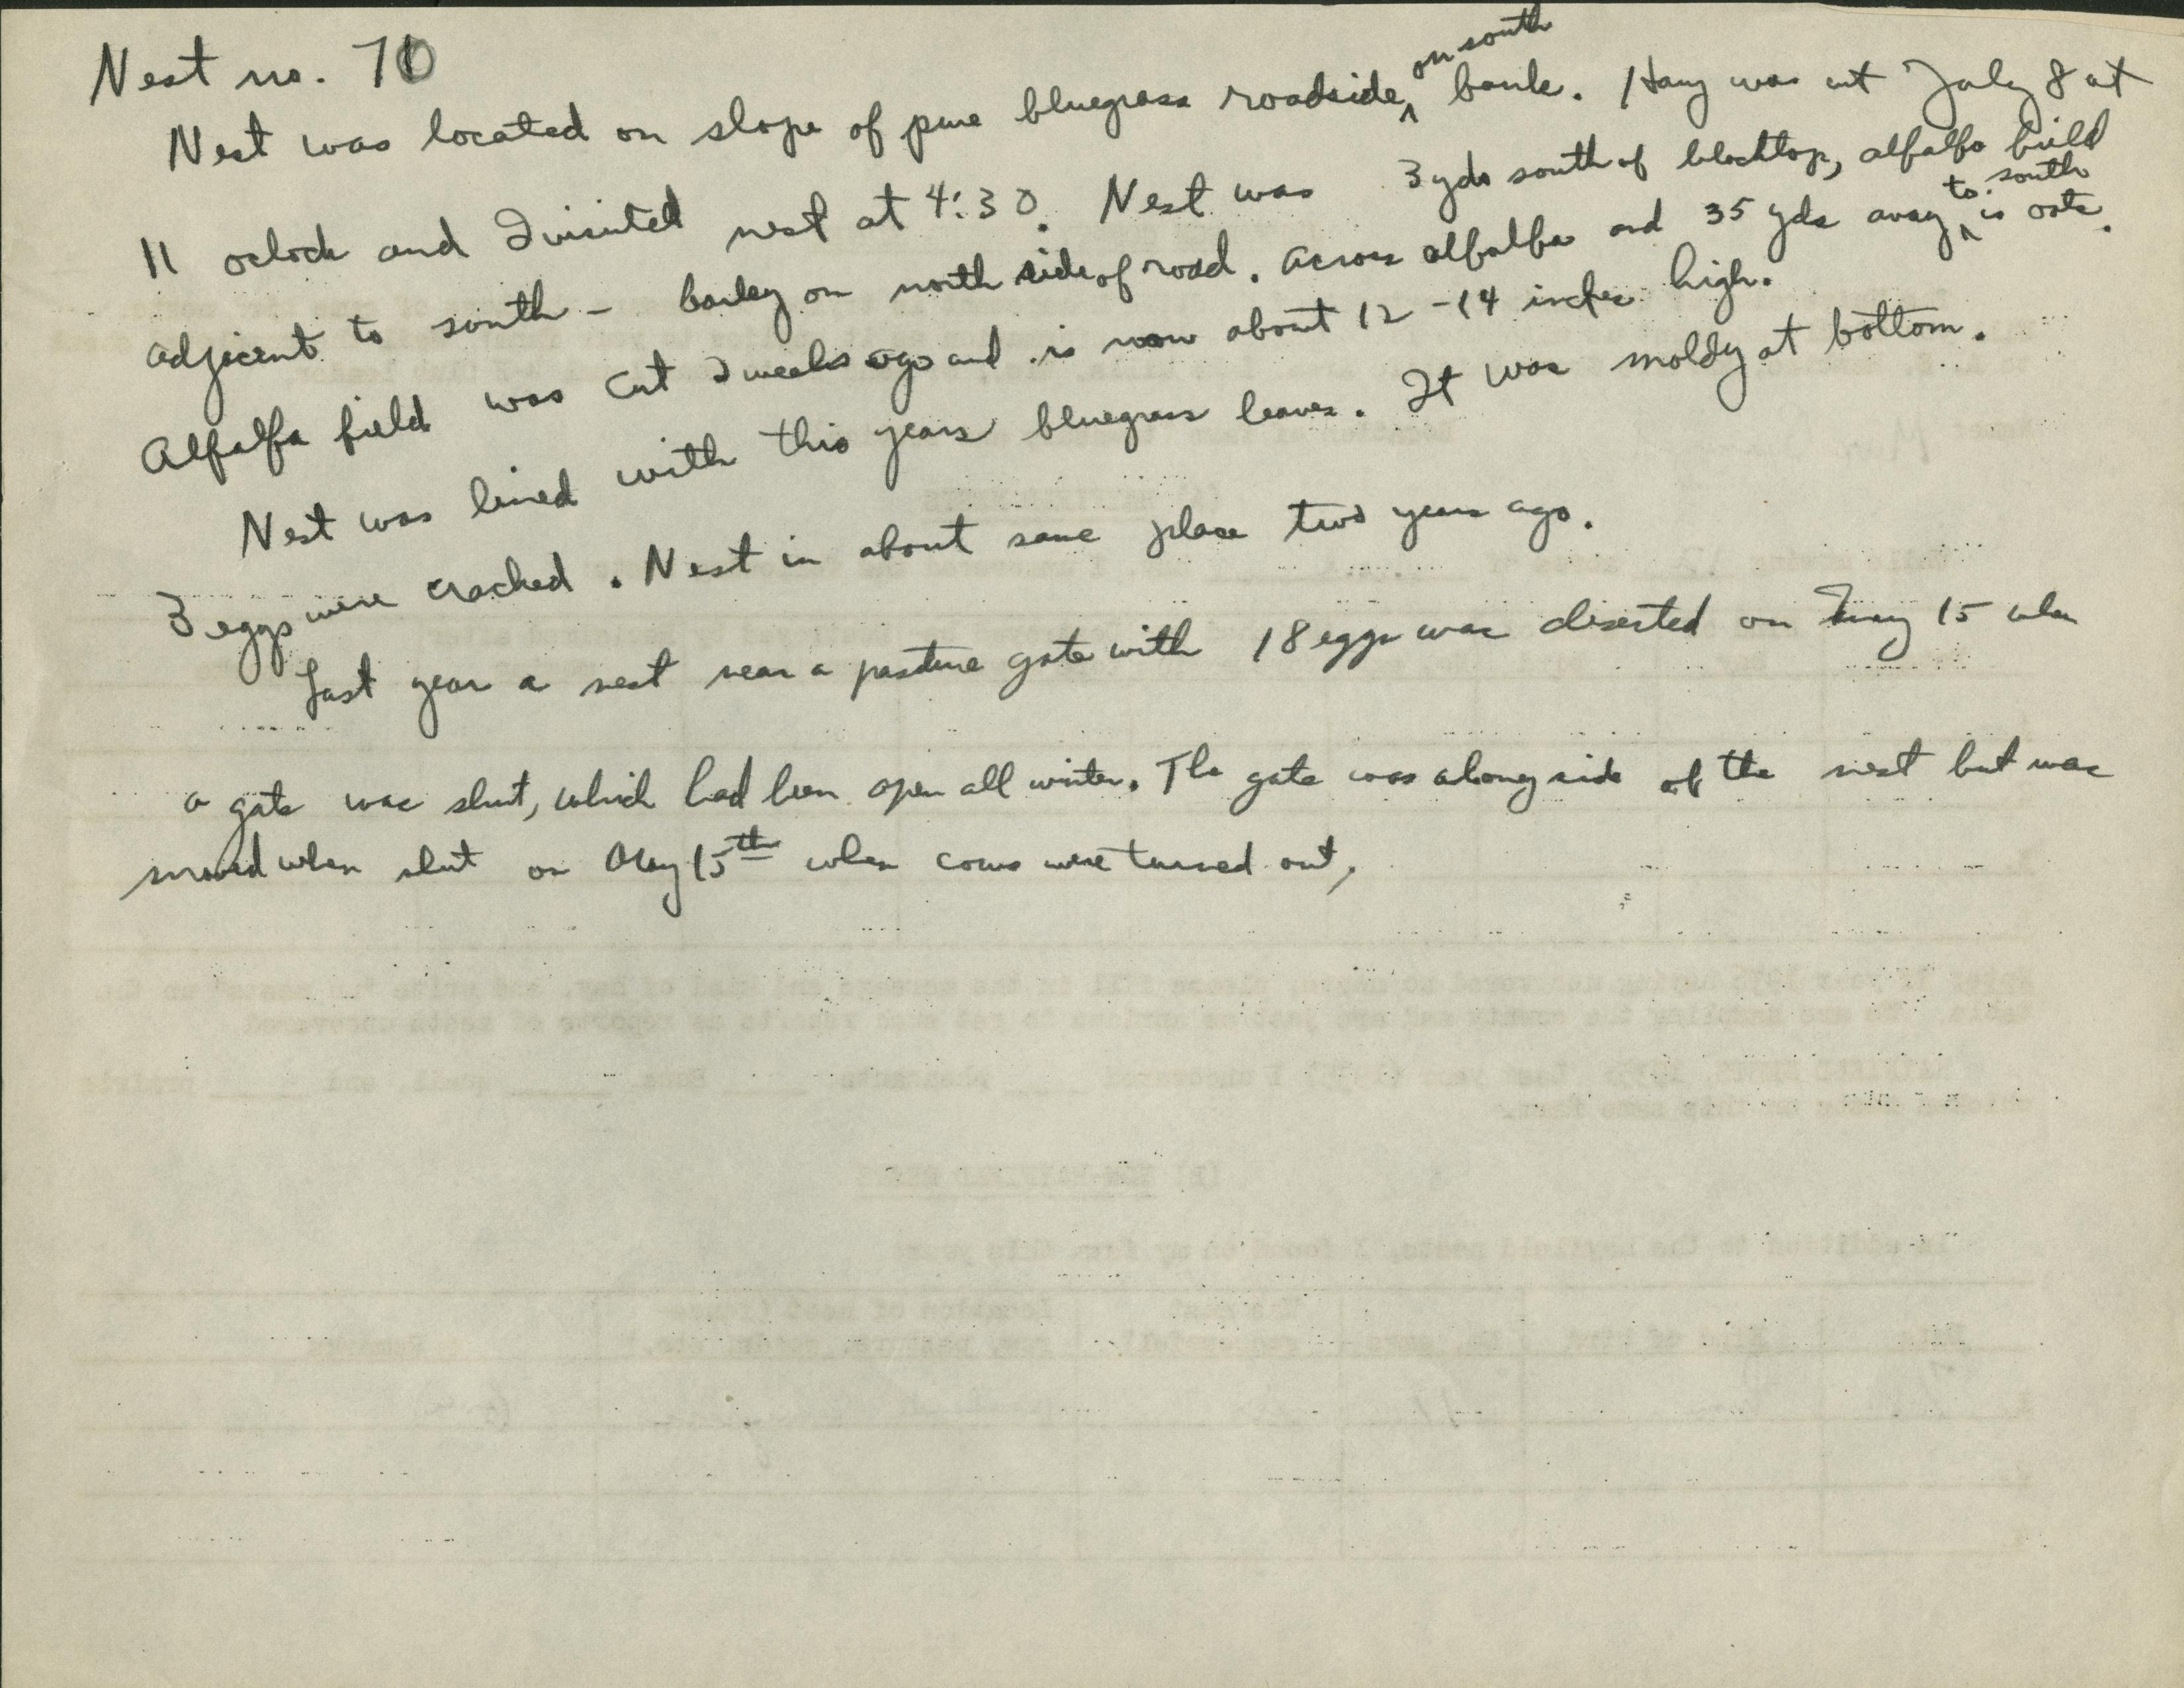 Nest no. 70
Nest was located on slope of pure bluegrass roadside, on south bank. Hay was cut July 8 at
11 oclock and I visited nest at 4:30. Nest was 3 yds south of blacktop, alfalfa field
adjecent to south - barley on north side of road. Across alfalfa and 35 yds away to south is oats.
Alfalfa field was cut 2 weeks ago and is now about 12-14 inches high.
Nest was lined with this years bluegrass leaves. It was moldy at bottom.
3 eggs were cracked. Nest in about same place two years ago.
Last year a nest near a pasture gate with 18 eggs was diserted on May 15 when
a gate was shut, which had been open all winter. The gate was along side of the nest but was
moved when shut on May 15th when cows were turned out.